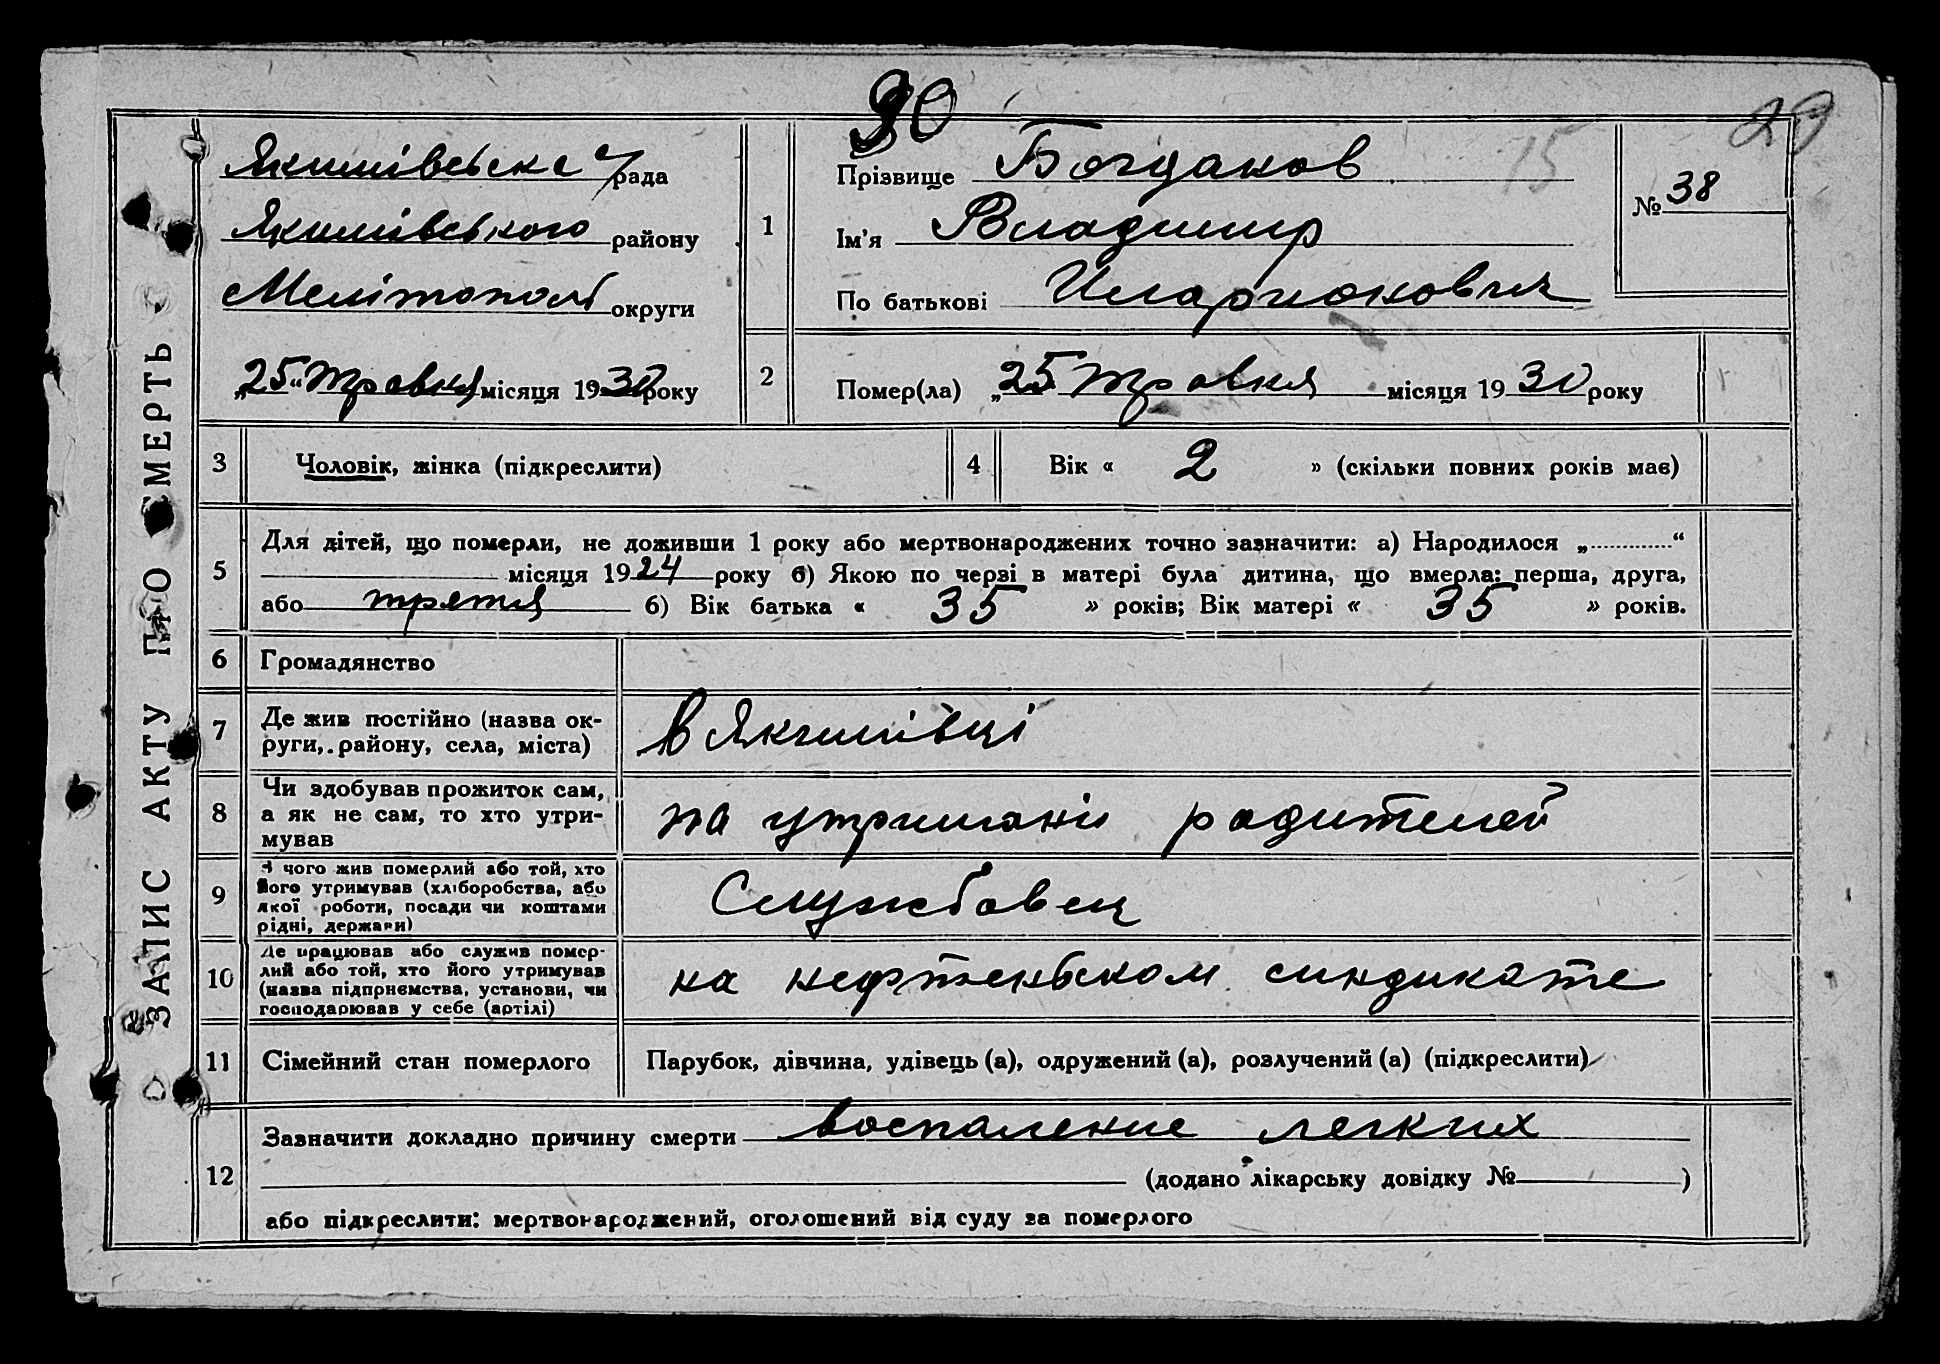 30
29
15
ЗАПИС АКТУ ПРО СМЕРТЬ
Якимівська рада
Якимівського району
Мелітопол округи
„25“ Травня місяця 1930 року
1
Прізвище Богданов
Ім'я Владимир
По батькові Иларионович
№ 38
2
Помер(ла) „25 Травня місяця 1930 року
3 Чоловік, жінка (підкреслити)
4 Вік « 2 » (скільки повних років має)
5
Для дітей, що померли, не доживши 1 року або мертвонароджених точно зазначити: а) Народилося „.............“
місяця 1924 року б) Якою по черзі в матері була дитина, що вмерла: перша, друга,
або третя б) Вік батька « 35 » років; Вік матері « 35 » років.
6 Громадянство
7
Де жив постійно (назва ок-
руги, району, села, міста)
в Якимівці
8
Чи здобував прожиток сам,
а як не сам, то хто утри-
мував
на утримані родителей
9
З чого жив померлий або той, хто
його утримував (хліборобства, або
якої роботи, посади чи коштами
рідні, держави)
Службовец
10
Де працював або служив помер-
лий або той, хто його утримував
(назва підприємства, установи, чи
господарював у себе (артілі)
на нефтеньском синдикате
11 Сімейний стан померлого
Парубок, дівчина, удівець (а), одружений (а), розлучений (а) (підкреслити)
12
Зазначити докладно причину смерти воспаление легких
(додано лікарську довідку № )
або підкреслити: мертвонароджений, оголошений від суду за померлого